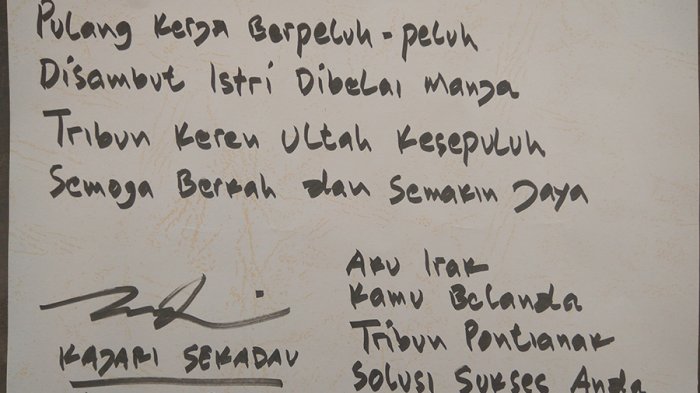 Pulang Kerja Berpeluh-peluh
Disambut Istri Dibelai Manja
Tribun Keren Ultah Kesepuluh
Semoga Berkah dan Semakin Jaya
KAJARI SEKADAU
Aku Irak
Kamu Belanda
Tribun Pontianak
Solusi Sukses Anda